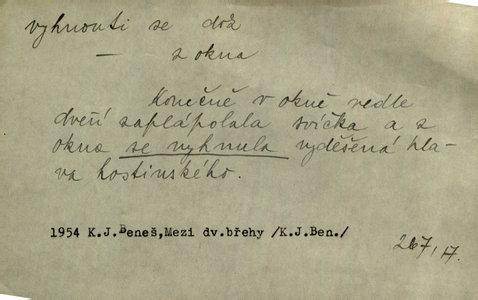 vyhnouti se dož
— z okna
Konečně v okně vedle
dveří zaplápolala svíčka a z
okna se vyhnula vyděšená hla-
va hostinského.
1954 K.J.Beneš,Mezi dv.břehy /K.J.Ben./
267,17.